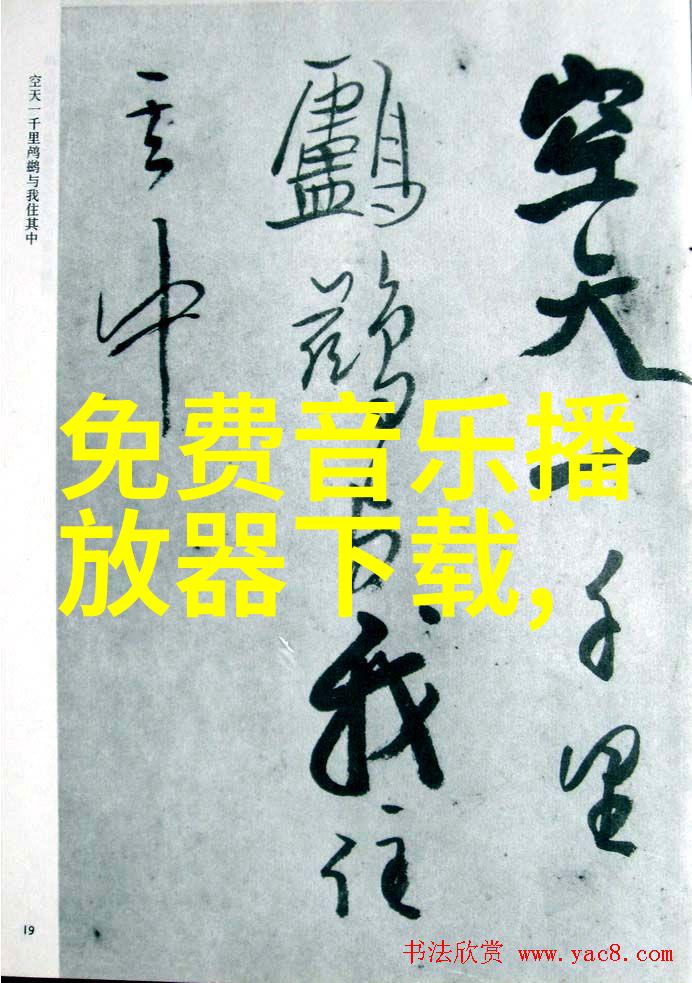 空天一千里
鸕鷀与我住
其中
空天一千里鸬鹚与我住其中
免费音乐播
放器下载,
19
书法欣赏 www.yac8.com